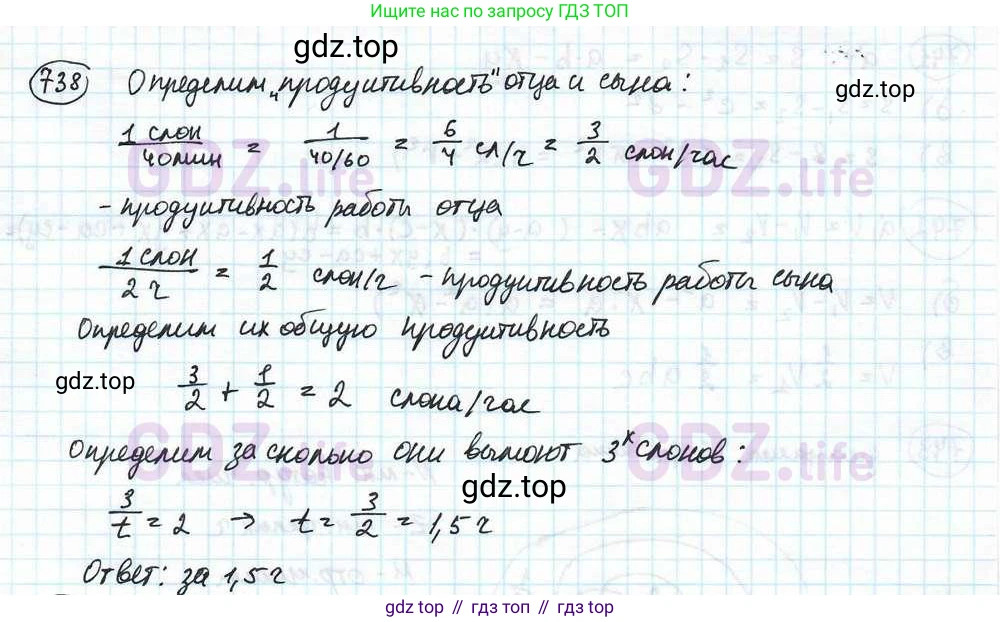 Ищите нас по запросу ГДЗ ТОП
gdz.top
738 Определим „продуктивность" отца и сына:
gdz.top
1 слон / 40мин = 1 / 40/60 = 6/4 сл/ч = 3/2 слон/час
GDZ.life GDZ.life
- продуктивность работы отца
1 слон / 2 ч = 1/2 слон/ч - продуктивность работы сына
Определим их общую продуктивность
gdz.top
3/2 + 1/2 = 2 слона/час
GDZ.life GDZ.life
Определим за сколько они вымоют 3х слонов:
gdz.top
3/t = 2 → t = 3/2 = 1,5 ч
Ответ: за 1,5 ч
gdz.top // гдз топ // гдз.top